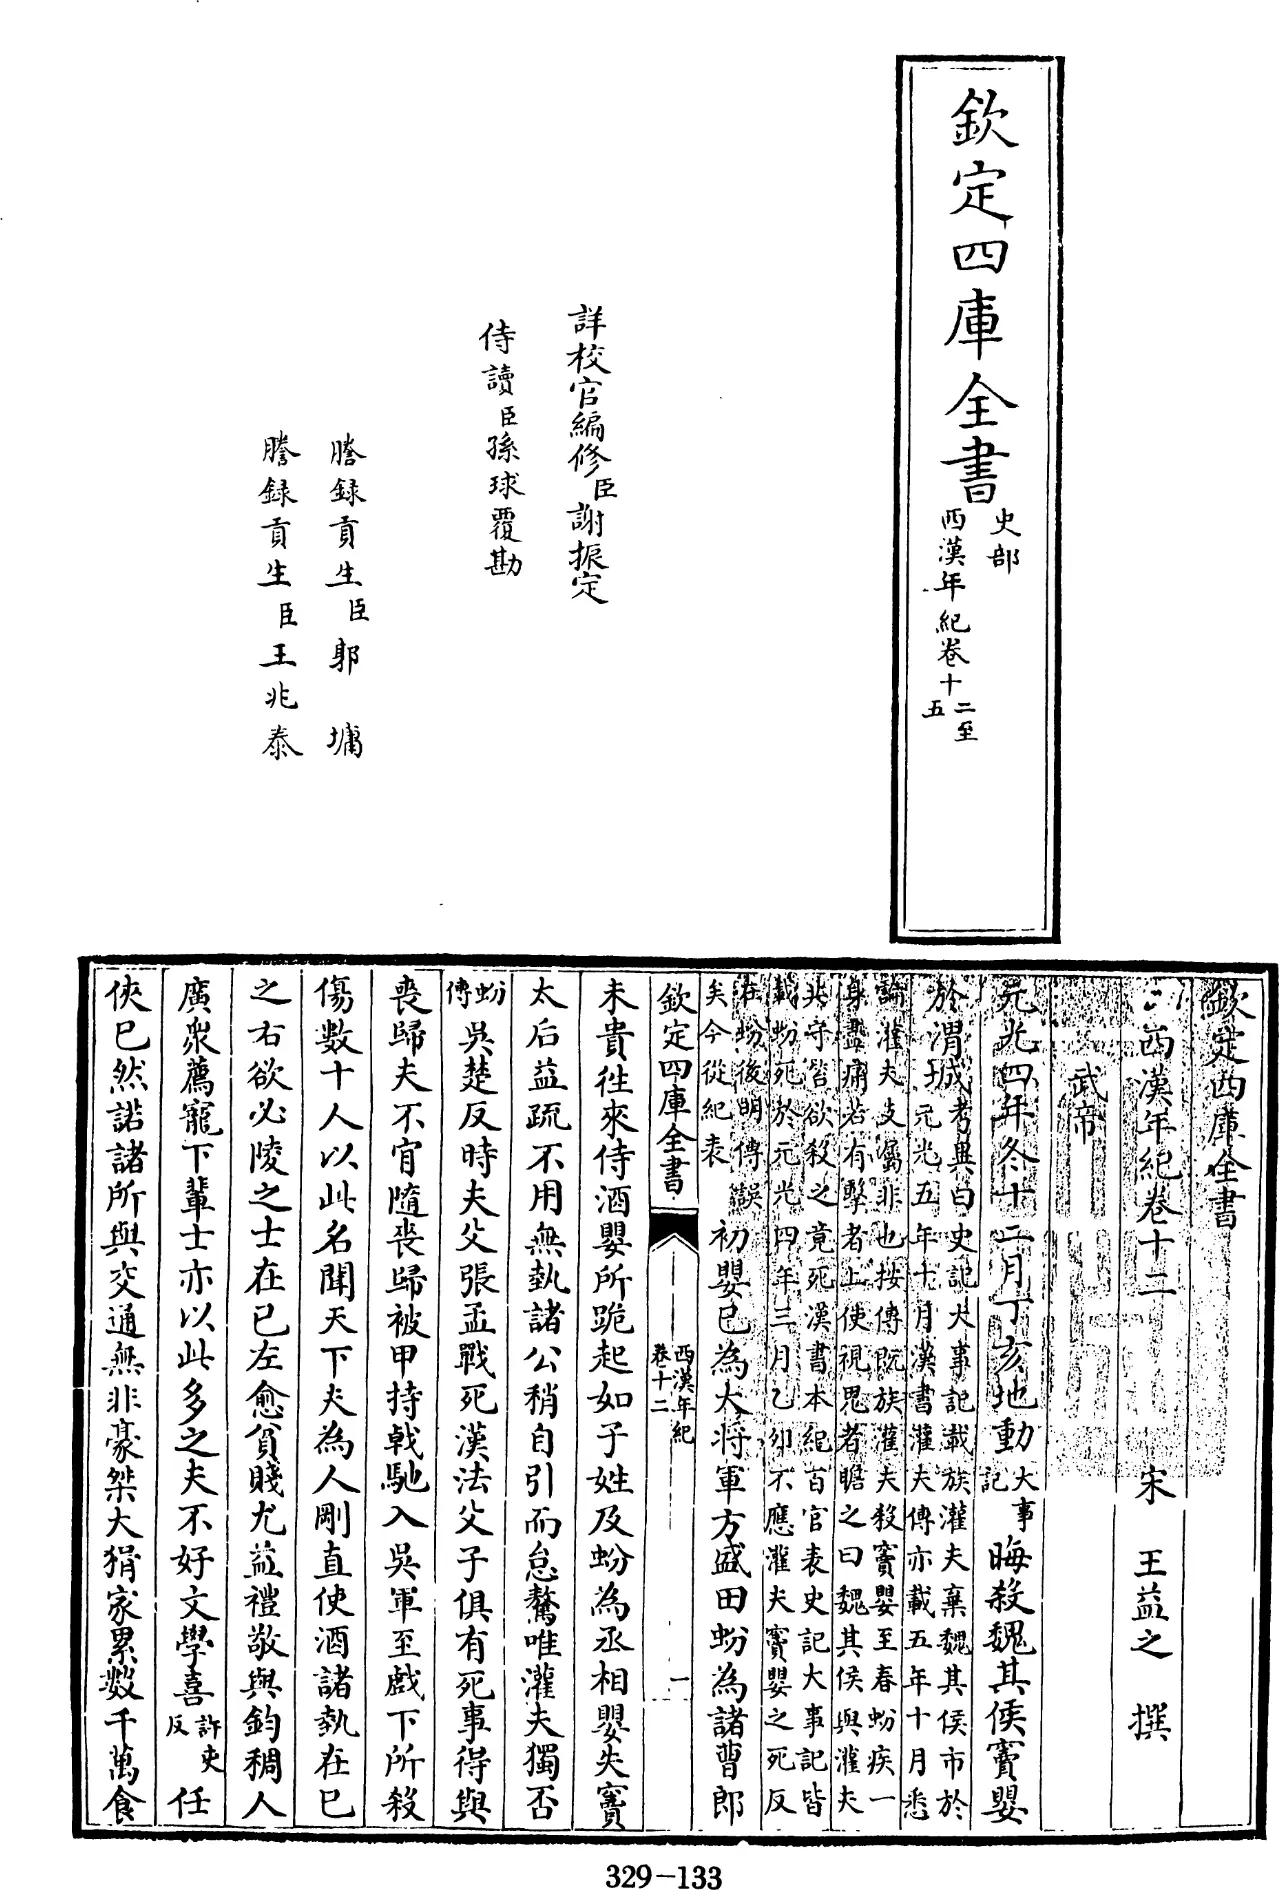 欽定四庫全書
史部
西漢年紀卷十二至
五
詳校官編修臣謝振定
侍讀臣孫球覆勘
謄錄貢生臣郭墉
謄錄貢生臣王兆泰
欽定四庫全書
西漢年紀卷十二
宋 王益之 撰
武帝
元光四年冬十二月丁亥地動大事記晦殺魏其侯竇嬰
於渭城考異曰史記大事記載族灌夫棄魏其侯市於
元光五年十月漢書灌夫傳亦載五年十月悉
論灌夫支屬非也按傳既族灌夫殺竇嬰至春蚡疾一
身盡痛若有擊者上使視鬼者瞻之曰魏其侯與灌夫
共守笞欲殺之竟死漢書本紀百官表史記大事記皆
載蚡死於元光四年三月乙卯不應灌夫竇嬰之死反
在蚡後明傳誤
矣今從紀表
初嬰已為大將軍方盛田蚡為諸曹郎
欽定四庫全書
西漢年紀
卷十二
一
未貴往來侍酒嬰所跪起如子姓及蚡為丞相嬰失竇
太后益疏不用無埶諸公稍自引而怠驁唯灌夫獨否
蚡傳吳楚反時夫父張孟戰死漢法父子俱有死事得與
喪歸夫不肯隨喪歸被甲持戟馳入吳軍至戲下所殺
傷數十人以此名聞天下夫為人剛直使酒諸埶在已
之右欲必陵之士在已左愈貧賤尤益禮敬與鈞稠人
廣眾薦寵下輩士亦以此多之夫不好文學喜許吏反任
俠已然諾諸所與交通無非豪桀大猾家累數千萬食
329-133